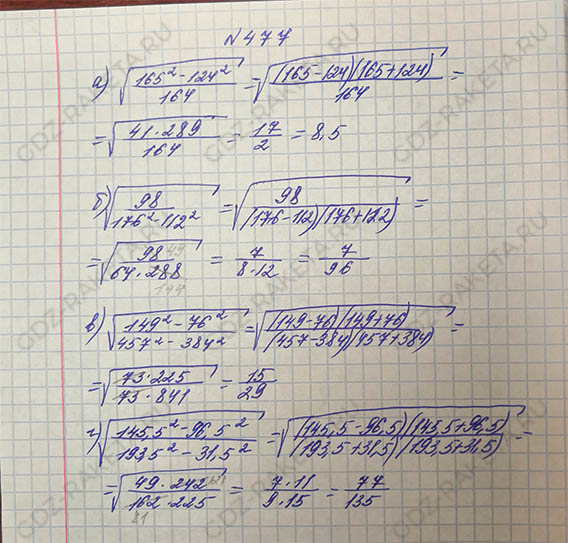 N 477
а) √((165² - 124²)/164) = √((165-124)(165+124)/164) =
= √((41·289)/164) = 17/2 = 8,5
б) √(98/(176²-112²)) = √(98/((176-112)(176+112))) =
= √(98 49/(64·288 144)) = 7/(8·12) = 7/96
в) √((149² - 76²)/(457² - 384²)) = √((149-76)(149+76)/((457-384)(457+384))) =
= √((73·225)/(73·841)) = 15/29
г) √((145,5² - 96,5²)/(193,5² - 31,5²)) = √((145,5-96,5)(145,5+96,5)/((193,5+31,5)(193,5+31,5))) =
= √((49·242 121)/(162·225)) = (7·11)/(9·15) = 77/135
81
GDZ-RAKETA.RU